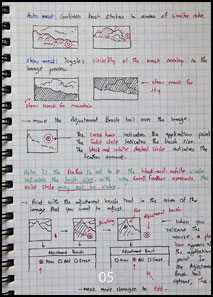 Auto mask: Confines brush strokes to areas of similar color.
Show mask: Toggles visibility of the mask overlay in the image preview.
Show mask for mountain
Show mask for sky
- Move the Adjustment Brush tool over the image.
The cross hair indicates the application point.
The solid circle indicates the brush size.
The black and white dashed circle indicates the feather amount.
Note: If the feather is set to 0, the black-and-white circle
indicates the brush size. With very small feather amounts, the
solid circle may not be visible.
- Paint with the adjustment brush tool in the area of the
image that you want to adjust.
Adjustment
When you
release the
mouse, a
appears at
the application
Adjustment Brush
New Add Erase
Adjustment Brush
New Add Erase
In
the Adjustment
Brush tool
options, the
05
- mask mode changes to Add.